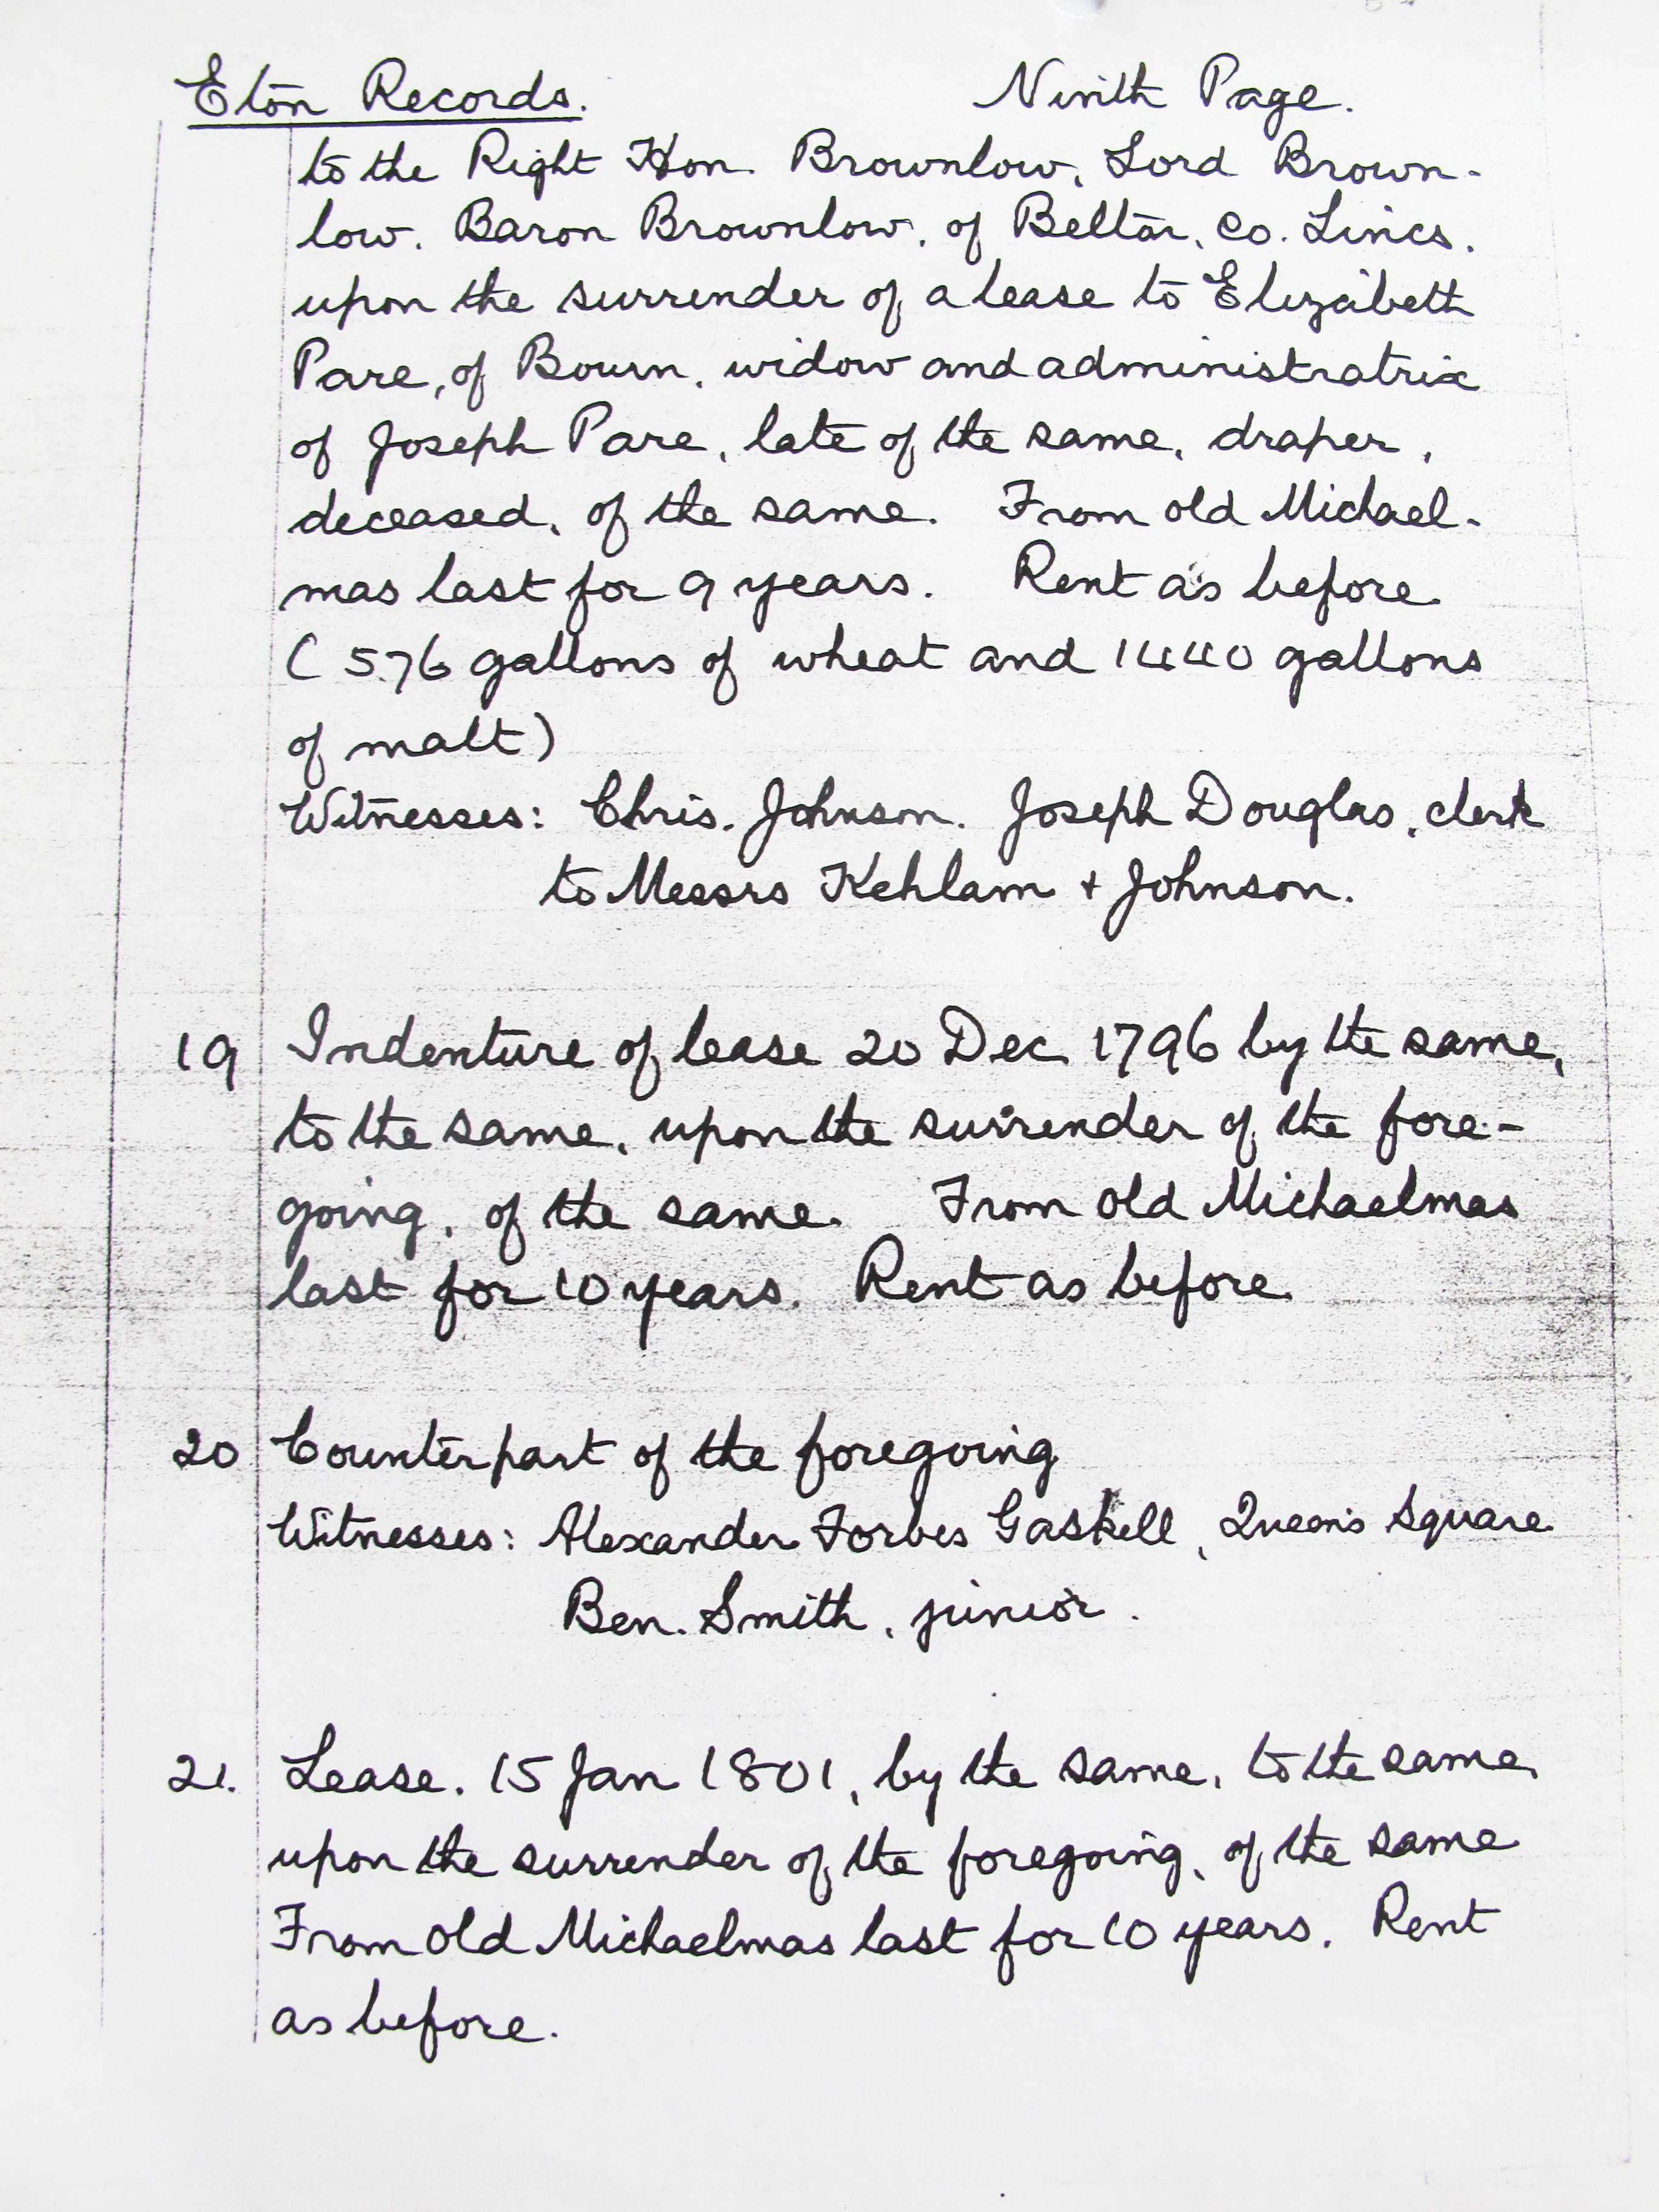 Eton Records. Ninth Page.
to the Right Hon. Brownlow, Lord Brown-
low. Baron Brownlow, of Belton, co. Lincs.
upon the surrender of a lease to Elizabeth
Pare, of Bourn, widow and administratrix
of Joseph Pare, late of the same, draper,
deceased, of the same. From old Michael-
mas last for 9 years. Rent as before
(576 gallons of wheat and 1440 gallons
of malt)
Witnesses: Chris. Johnson. Joseph Douglas, clerk
to Messrs Kehlam + Johnson.
19 Indenture of lease 20 Dec 1796 by the same,
to the same, upon the surrender of the fore-
going, of the same. From old Michaelmas
last for 10 years. Rent as before.
20 Counterpart of the foregoing
Witnesses: Alexander Forbes Gaskell, Queen's Square
Ben. Smith, junior.
21. Lease. 15 Jan 1801, by the same, to the same,
upon the surrender of the foregoing, of the same
From old Michaelmas last for 10 years. Rent
as before.